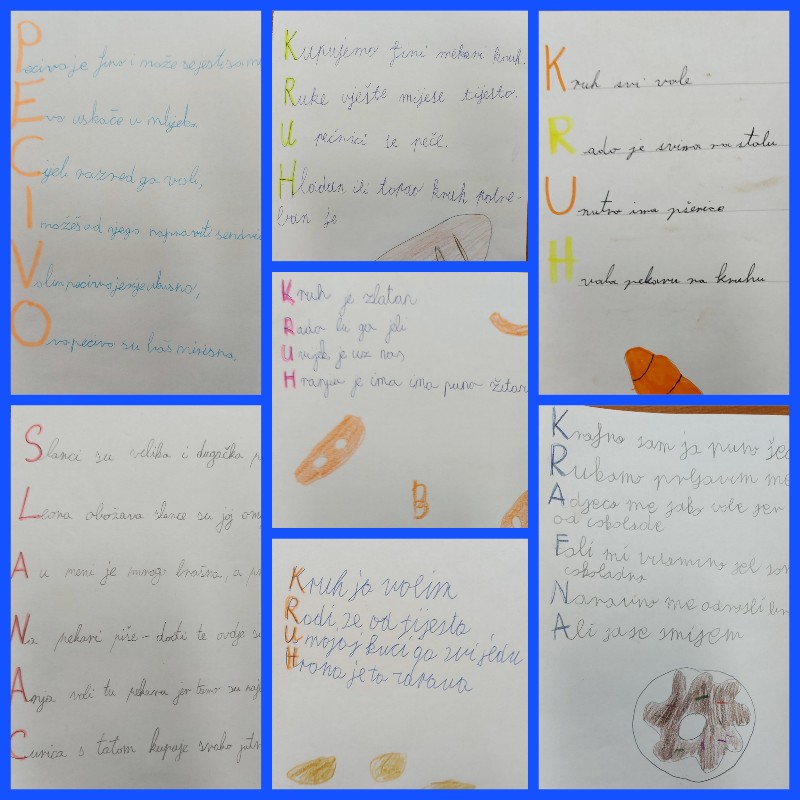 Pecivo je fino i može se jesti samo
Evo uskače u mlijeko
Cijeli razred ga voli,
I možeš od njega napraviti sendvič
Volim pecivo jer je ukusno,
Ova peciva su baš mirisna,
Kupujemo fini mekani kruh.
Ruke vješte mijese tijesto.
U pećnici se peče.
Hladan ili topao kruh potre-
ban je
Kruh svi vole
Rado je svima na stolu
Unutra ima pšenice
Hvala pekaru na kruhu
Kruh je zlatan
Rado bi ga jeli
Uvijek je uz nas
Hranjiv je ima ima puno žitar
B
Slanci su velika i dugačka p
Leona obožava slance su joj
A u meni je mnogo brašna, a
Na pekari piše - dođi te ovdje
Anja voli tu pekaru jer tamo su naj
Curica s tatom kupuje svako jut
Kruh ja volim
Radi ze od tijesta
U mojoj kući ga svi jedu
Hrana je to zdrava
Krafna sam ja puno
Rukamo prljavim me
A djeca me jako vole jer
od čokolade
Fali mi vitamina jel sam
čokoladna
Naravino me odrasli
Ali zase smijem